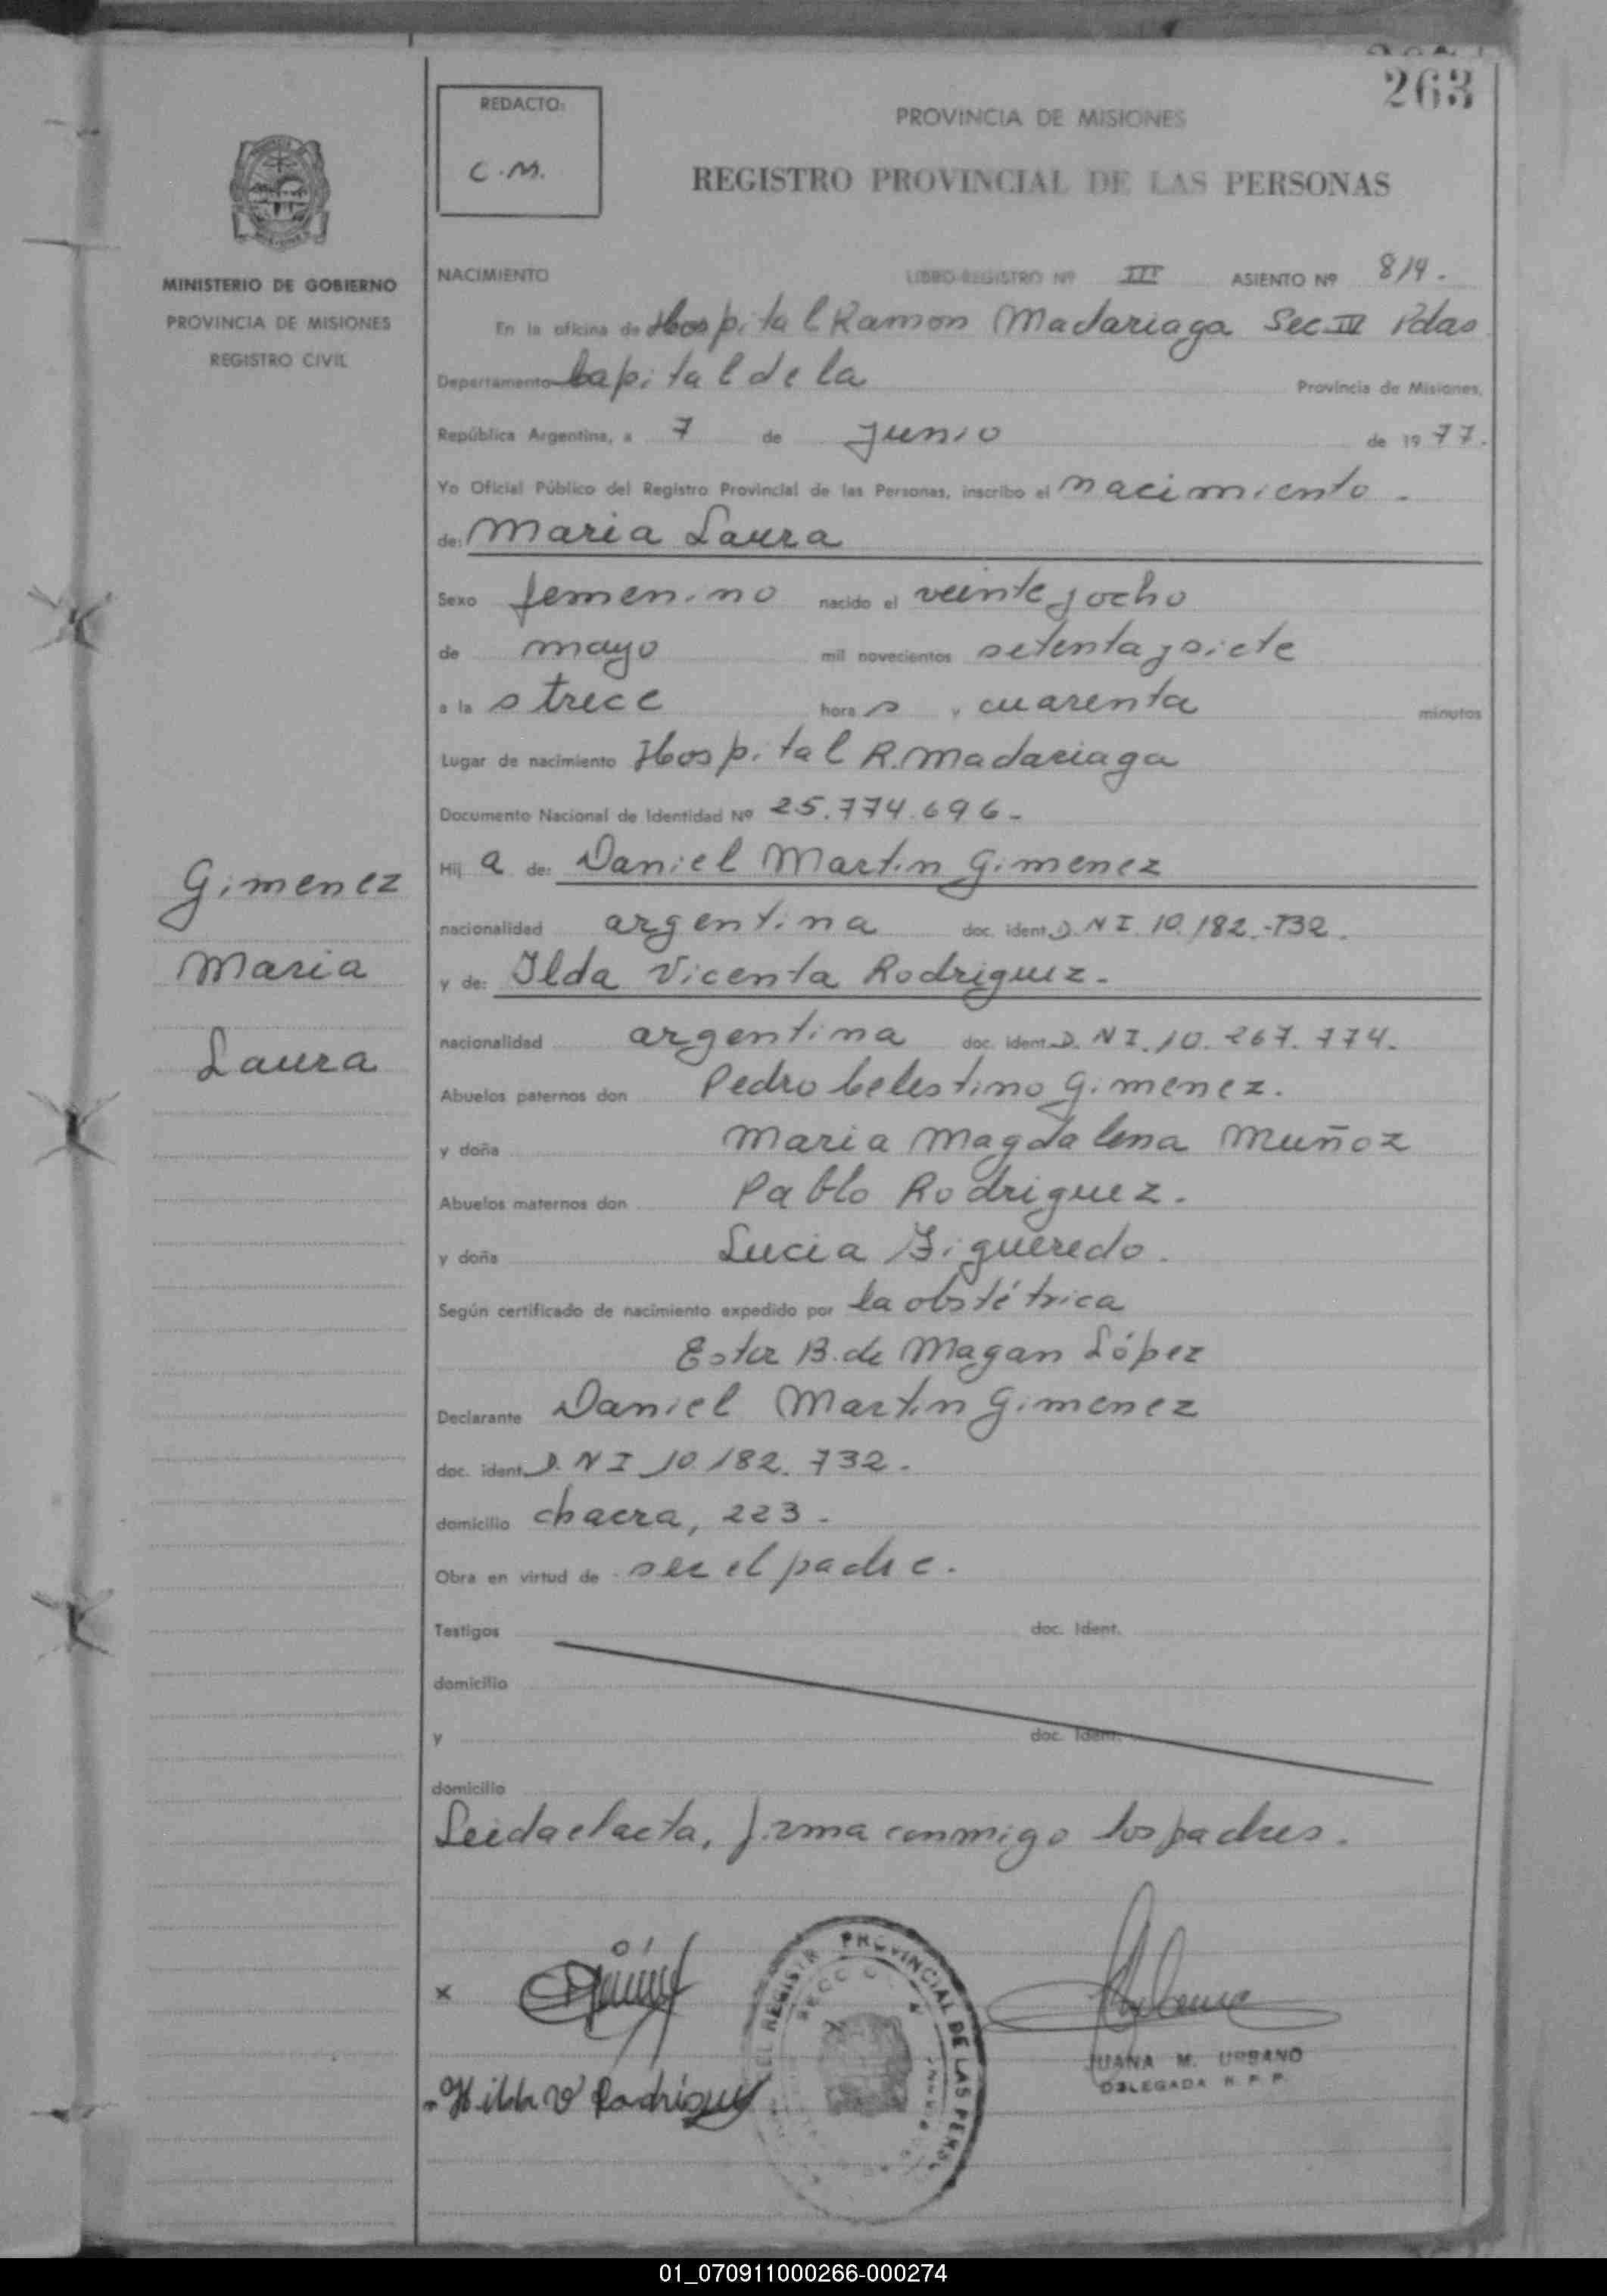 263
REDACTO:
C.M.
PROVINCIA DE MISIONES
REGISTRO PROVINCIAL DE LAS PERSONAS
MINISTERIO DE GOBIERNO
PROVINCIA DE MISIONES
REGISTRO CIVIL
NACIMIENTO LIBRO-REGISTRO Nº III ASIENTO Nº 814.
En la oficina de Hospital Ramon Madariaga Sec IV Pdas
Departamento Capital de la Provincia de Misiones,
República Argentina, a 7 de Junio de 1977.
Yo Oficial Público del Registro Provincial de las Personas, inscribo el nacimiento.
de: Maria Laura
Sexo femenino nacido el veinte y ocho
de mayo mil novecientos setenta y siete
a la s trece hora s y cuarenta minutos
Lugar de nacimiento Hospital R. Madariaga
Documento Nacional de Identidad Nº 25.774.696.-
Hij a de: Daniel Martin Gimenez
nacionalidad argentina doc. ident. D.N I. 10.182.-732.
y de: Ilda Vicenta Rodriguez.-
nacionalidad argentina doc. ident. D. N I. 10. 267. 774.
Abuelos paternos don Pedro Celestino Gimenez.
y doña Maria Magdalena Muñoz
Abuelos maternos don Pablo Rodriguez.
y doña Lucia Figueredo.
Según certificado de nacimiento expedido por la obstétrica
Ester B. de Magan López
Declarante Daniel Martin Gimenez
doc. ident. D. N I 10.182. 732.
domicilio chacra, 223.
Obra en virtud de ser el padre.
Testigos doc. Ident.
domicilio
y doc. Ident.
domicilio
Leida el acta, firma conmigo los padres.
Gimenez
Maria
Laura
x
Hilda V Rodriguez
REGISTR PROVINCIAL DE LAS PERS
JUANA M. URBANO
DELEGADA R. P. P.
01_070911000266-000274